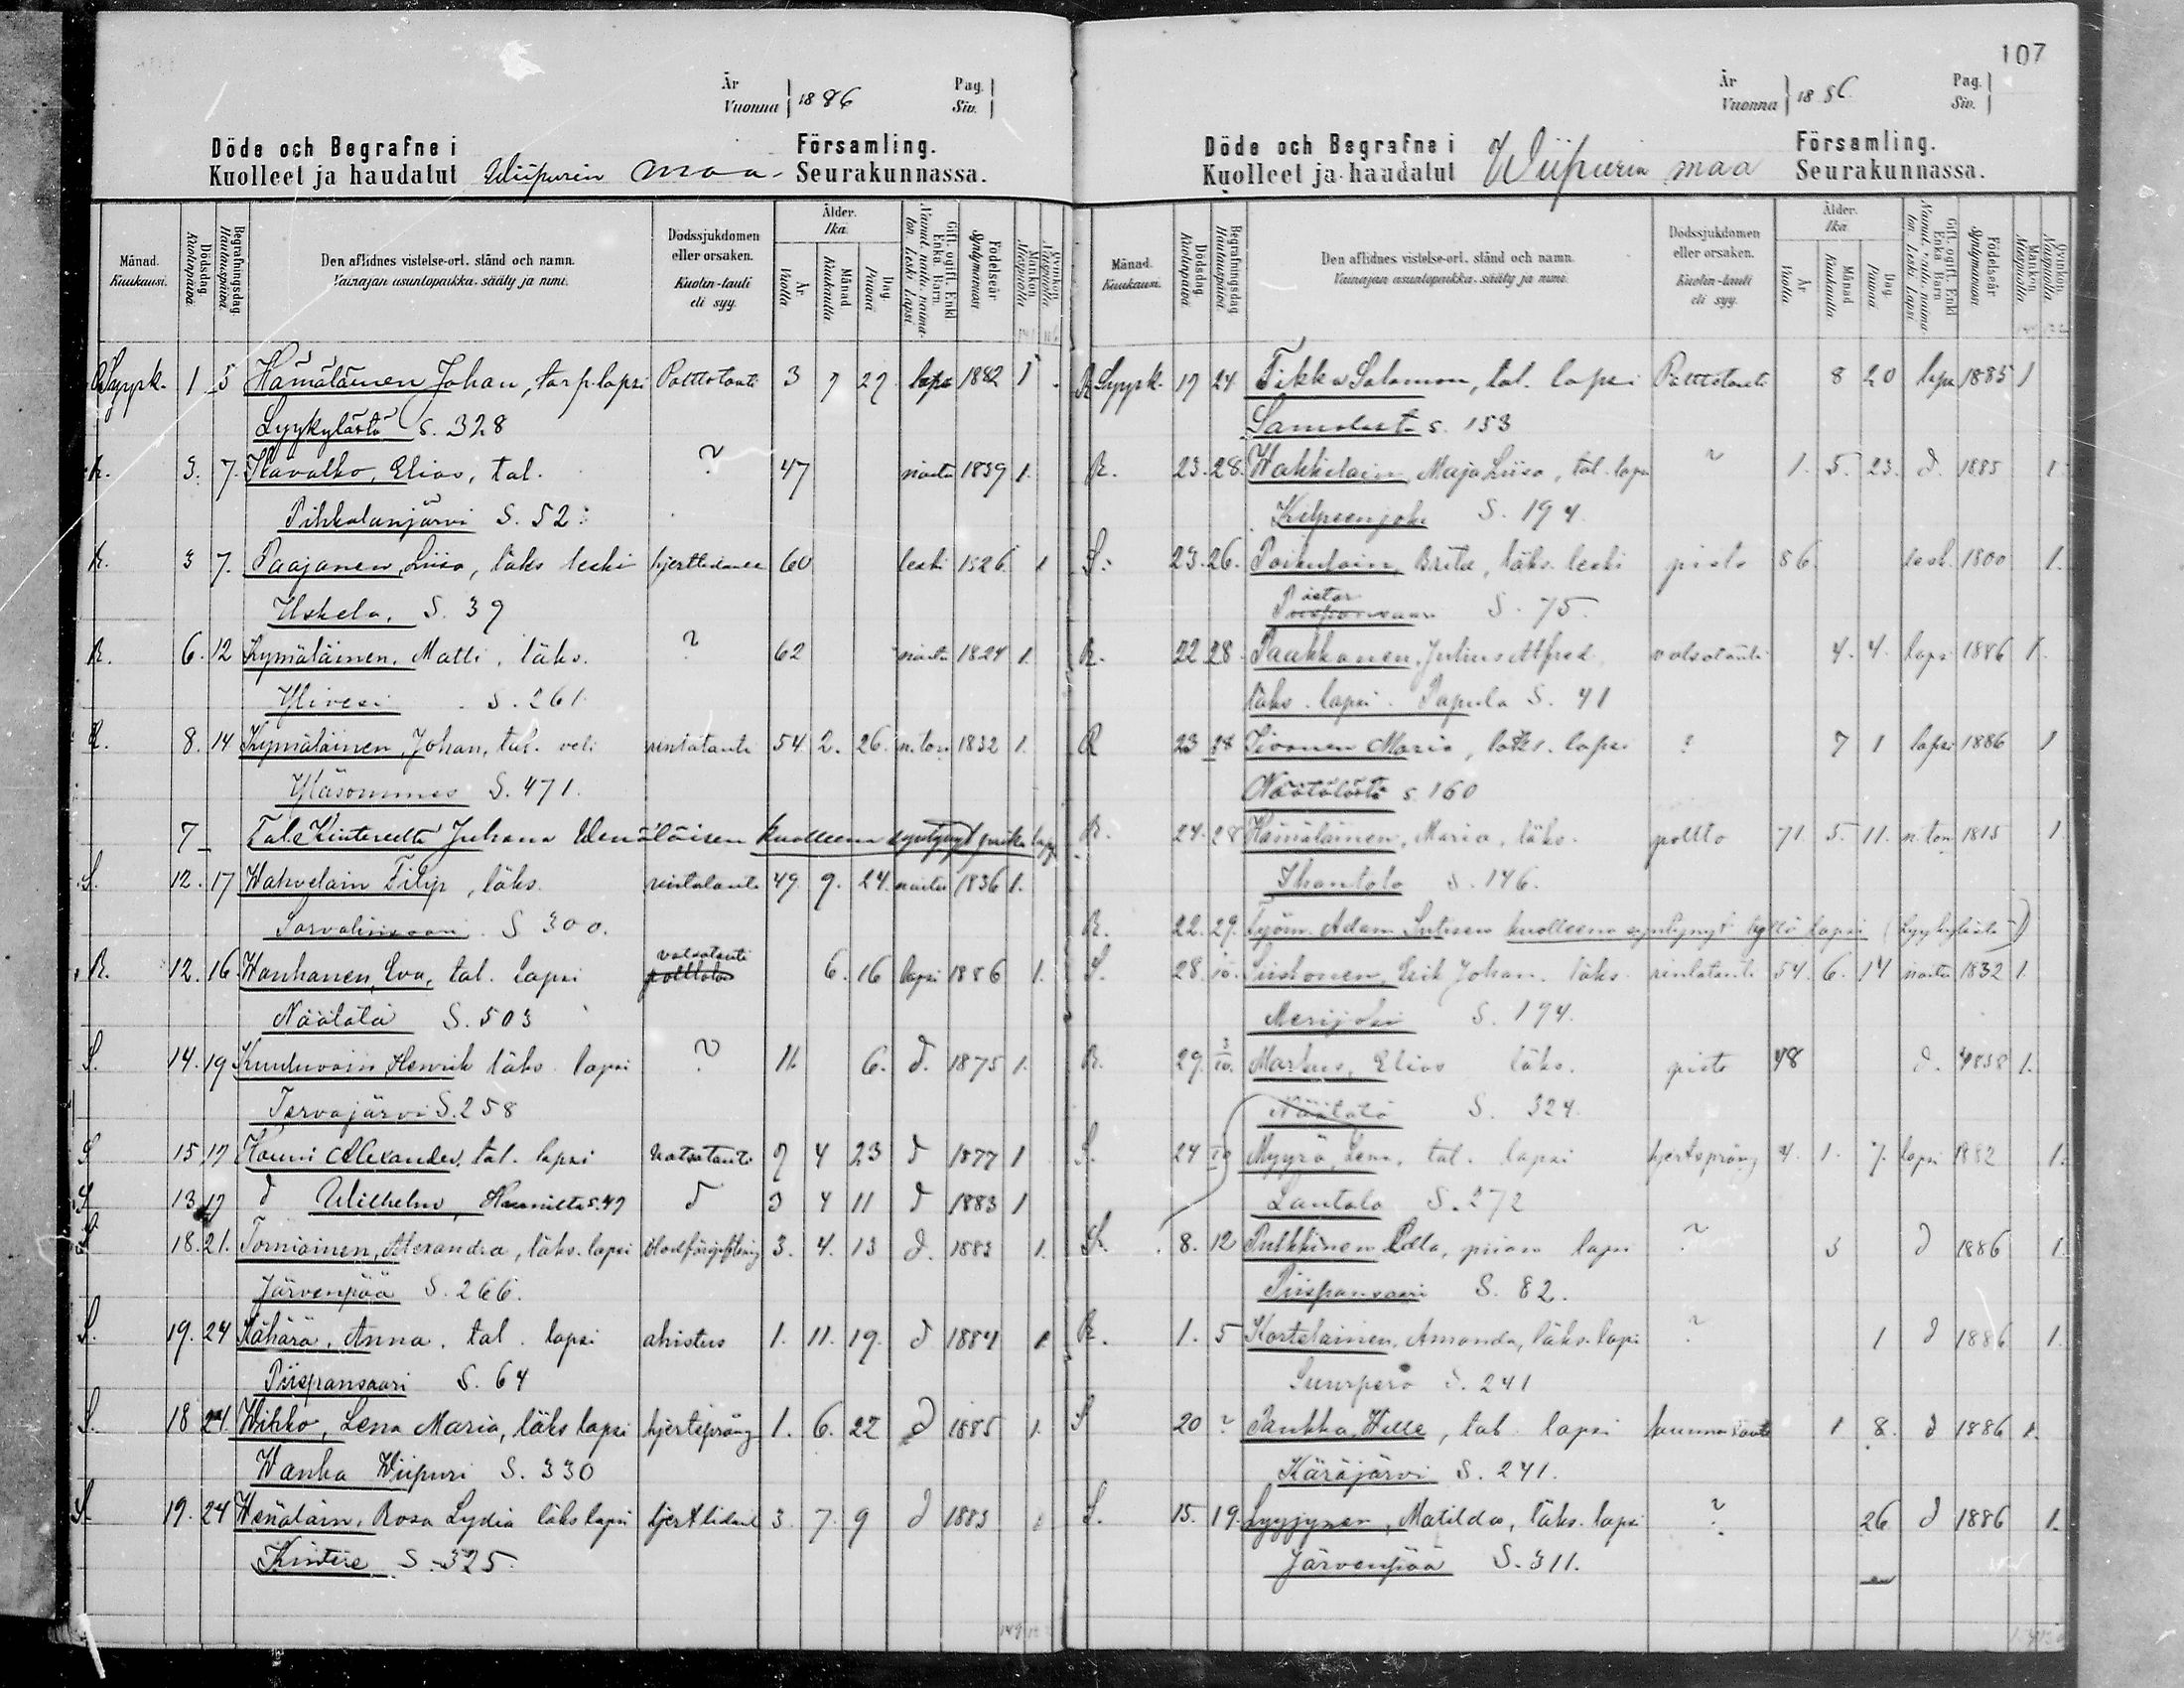 År
Vuonna 1886
Pag.
Siv.
Döde och Begrafne i Församling.
Kuolleet ja haudatut Wiipurin maa- Seurakunnassa.
Månad. Kuukausi.
Dödsdag. Kuolinpäivä.
Begrafningsdag. Hautauspäivä.
Den aflidnes vistelse-ort. stånd och namn.
Vainajan asuntopaikka. sääty ja nimi.
Dödssjukdomen eller orsaken.
Kuolin-tauti eli syy.
Ålder. Ikä.
År Vuotta
Månad Kuukautta
Dag Päivää
Gift. ogift. Enkl. Enka Barn
Födelseår Syntymävuosi
Mankön. Miespuolia
Qvinkön. Vaispuolia
Syysk. 1 5 Hämäläinen Johan, torp. lapsi Polttotauti 3 7 27 lapsi 1882 1
Lyykylästä s. 328
R. 3. 7. Kavalko, Elias, tal. ? 47 naitu 1839 1.
Pihkalanjärvi S. 52
R. 3 7. Paajanen, Liisa, läks leski hjertlidande 60 leski 1826 1
Uskela, S. 39
R. 6. 12 Kymäläinen, Matti, läks. ? 62 naitu 1824 1.
Ylivesi S. 261.
R. 8. 14 Kymäläinen, Johan, tal. veli rintatauti 54 2. 26. n. ton 1832 1.
Yläsommes S. 471.
7 Tal. Kintereeltä Juhana Wenäläisen kuolleena syntynyt poika lapsi
S. 12. 17 Wahvelain Filip, läks. rintatauti 49 9. 24. naitu 1836 1.
Sorvalinsaari. S 300.
R. 12. 16 Wanhanen, Eva, tal. lapsi vatsatauti polttotau 6. 16 lapsi 1886 1.
Näätälä S. 503
S. 14. 19 Henrik läks. lapsi ? 11. 6. d. 1875 1.
Tervajärvi S. 258
S 15 17 Kouni Alexander, tal. lapsi Vatsatauti 9 4 23 d 1877 1
S 13 17 d Wilhelm, s. 47 d 3 4 11 d 1883 1
S 18. 21. Torniainen, Alexandra, läks. lapsi blodförgiftning 3. 4. 13 d. 1883 1.
Järvenpää S. 266.
S. 19. 24 Kähärä, Anna. tal. lapsi ahistus 1. 11. 19. d 1884 1
Piispansaari S. 64
S. 18 24. Wihko, Lena Maria, läks lapsi hjertspräng 1. 6. 22 d 1885 1.
Wanha Wiipuri S. 330
S. 19. 24 Wenäläin, Rosa Lydia läks lapsi hjertlidand 3. 7. 9 d 1883 1
Kintere S. 325.
107
År
Vuonna 1886
Pag.
Siv.
Döde och Begrafne i Församling.
Kuolleet ja haudatut Wiipurin maa Seurakunnassa.
Månad. Kuukausi.
Dödsdag. Kuolinpäivä.
Begrafningsdag. Hautauspäivä.
Den aflidnes vistelse-ort. stånd och namn.
Vainajan asuntopaikka. sääty ja nimi.
Dödssjukdomen eller orsaken.
Kuolin-tauti eli syy.
Ålder. Ikä.
År Vuotta
Månad Kuukautta
Dag Päivää
Gift. ogift. Enkl. Enka Barn
Födelseår Syntymävuosi
Mankön. Miespuolia
Qvinkön. Vaispuolia
R Syysk. 17 24 Tikka Salomon, tal. lapsi Polttotauti 8 20 lapsi 1885 1
Samolasta s. 153
R. 23. 28. Wakkilain, Maja Liisa, tal. lapsi ~ 1. 5. 23. d. 1885 1.
Kilpeenjoki S. 194.
S. 23. 26. Paikulain, Brita, läks. leski pisto 86. lesk. 1800 1.
S. 75.
R. 22 28. Paakkanen, Julius Alfred. vatsatauti 4. 4. lapsi 1886 1.
läks. lapsi. Papula S. 41
R 23 28 Sivonen Maria, läks. lapsi ? 7 1 lapsi 1886 1
Näätälästä s. 160
R. 24. 28 Hämäläinen, Maria, läks. poltto 71. 5. 11. n. ton 1815 1.
Ihantala S. 146.
R. 22. 29. Työm. Adam Sutisen kuolleena syntynyt tyttö lapsi (Lyykylästä)
S. 28. /10. Siiskonen, Erik Johan. läks. rintatauti 54. 6. 14 naitu 1832 1.
Merijoki S. 194.
R. 29. 3/10. Markus, Elias läks. pisto 48 d. 1838 1.
Näätälä S. 324.
S. 24 /10 Myyrä, Lena, tal. lapsi hjertspräng 4. 1. 7. lapsi 1882 1.
Lantala S. 272
S. 8. 12 Pulkkinen Ella, piian lapsi ? 3 d 1886 1.
Piispansaari S. 82.
R. 1. 5 Kortelainen, Amanda, läks. lapsi ? 1 d 1886 1.
Suurpero S. 241
S 20 ? Pankka, Wille, tal. lapsi 1 8. d 1886 1.
Käräjärvi S. 241.
S. 15. 19. Lyyjynen, Matilda, läks. lapsi ? 26 d 1886 1.
Järvenpää S. 311.